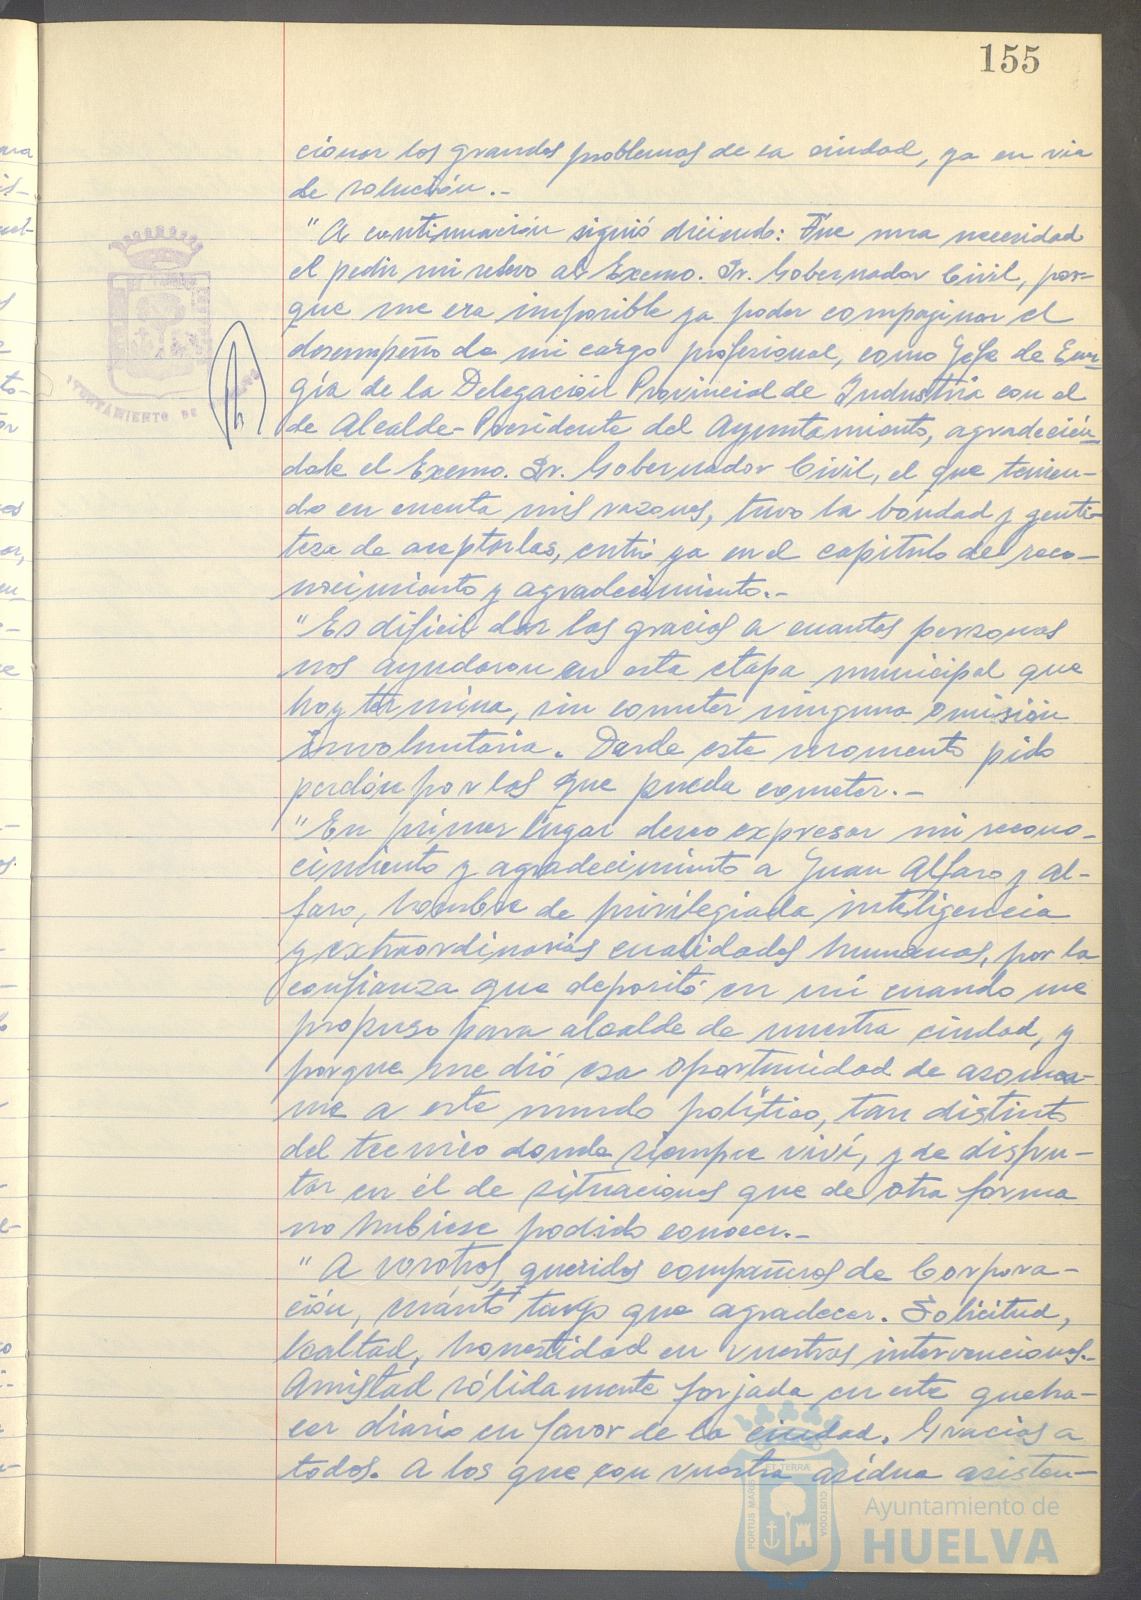 155
cionar los grandes problemas de la ciudad, ya en via
de solución.-
"A continuación siguió diciendo: Fue una necesidad
el pedir mi relevo al Excmo. Sr. Gobernador Civil, por-
que me era imposible ya poder compaginar el
desempeño de mi cargo profesional, como Jefe de Ener-
gía de la Delegación Provincial de Industria con el
de Alcalde-Presidente del Ayuntamiento, agradecién-
dole el Excmo. Sr. Gobernador Civil, el que tenien-
do en cuenta mis razones, tuvo la bondad y genti-
leza de aceptarlas, entri ya en el capitulo de reco-
nocimiento y agradecimiento.-
"Es dificil dar las gracias a cuantas personas
nos ayudaron en esta etapa municipal que
hoy termina, sin cometer ninguna omisión
involuntaria. Desde este momento pido
perdón por las que pueda cometer.-
"En primer lugar deseo expresar mi recono-
cimiento y agradecimiento a Juan Alfaro y Al-
faro, hombre de privilegiada inteligencia
y extraordinarias cualidades humanas, por la
confianza que depositó en mi cuando me
propuso para alcalde de nuestra ciudad, y
porque me dió esa oportunidad de asomar-
me a este mundo político, tan distinto
del tecnico donde siempre viví, y de disfru-
tar en él de situaciones que de otra forma
no hubiese podido conocer.-
"A vosotros, queridos compañeros de Corpora-
ción, cuánto tengo que agradecer. Solicitud,
lealtad, honestidad en vuestras intervenciones.-
Amistad sólidamente forjada en este queha-
cer diario en favor de la ciudad. Gracias a
todos. A los que con vuestra asidua asisten-
AYUNTAMIENTO DE HUELVA
PORTUS MARIS ET TERRAE CUSTODIA
Ayuntamiento de
HUELVA